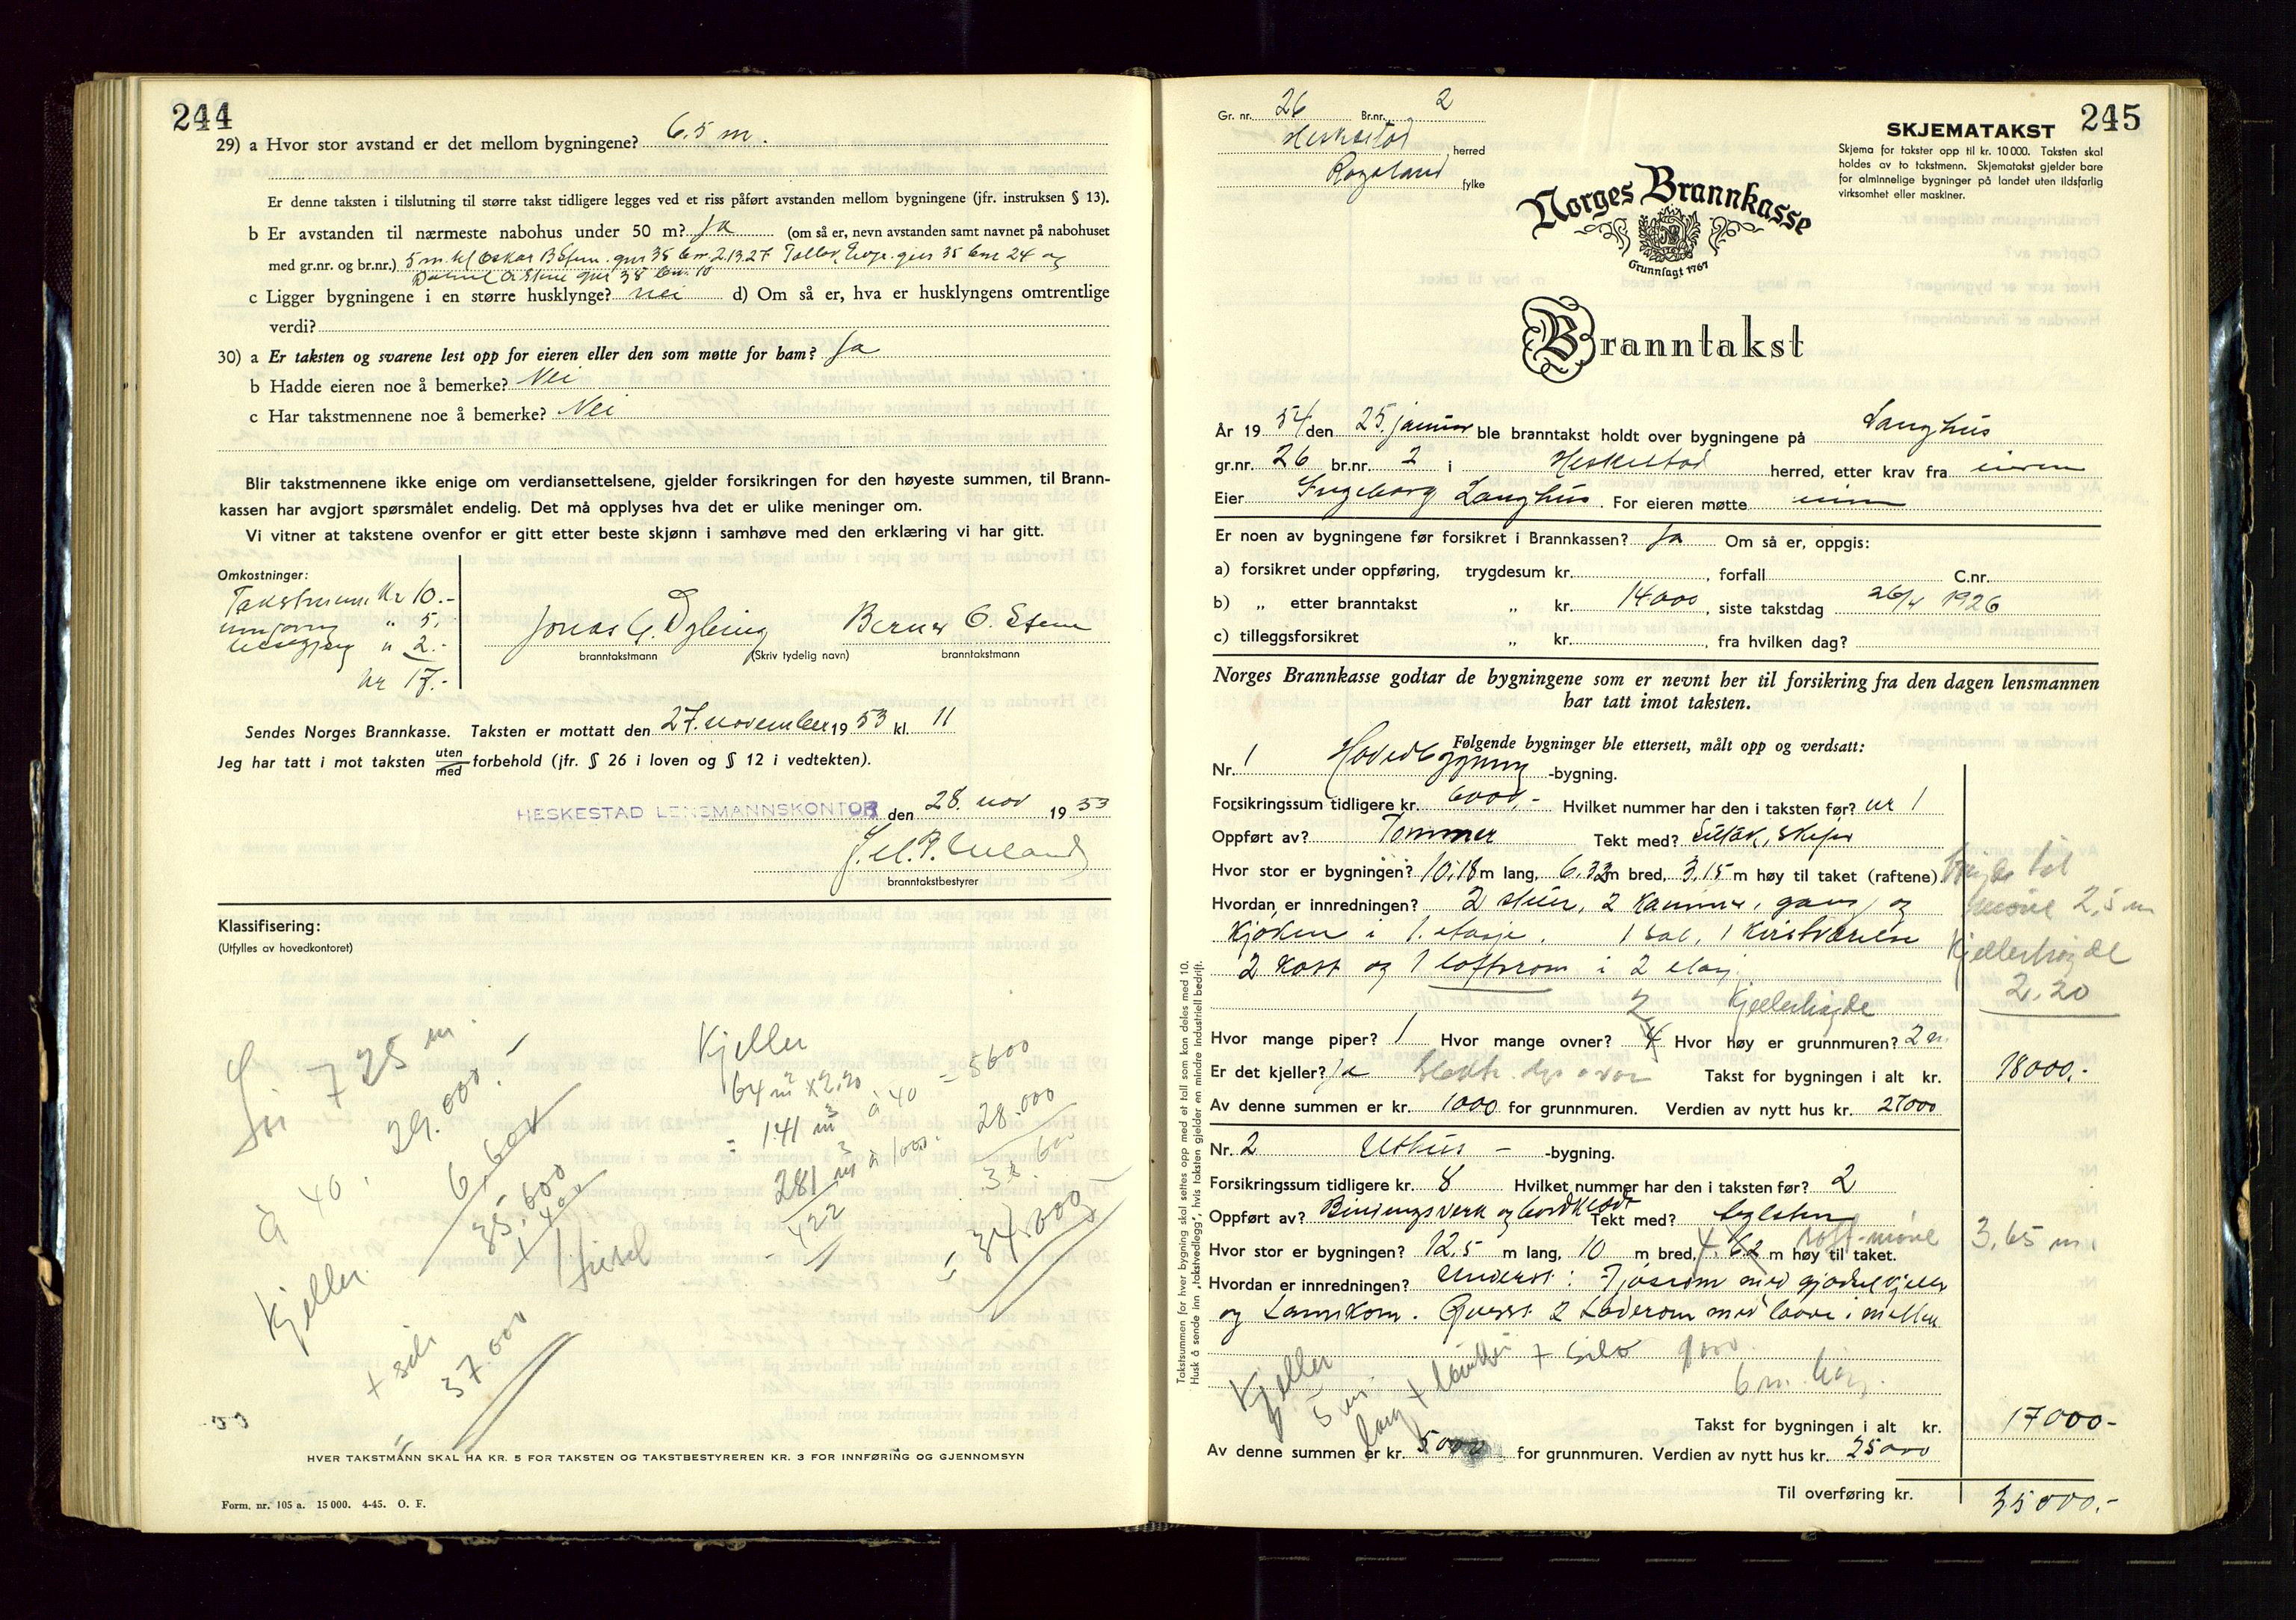 244
29) a Hvor stor avstand er det mellom bygningene? 6.5 m.
Er denne taksten i tilslutning til større takst tidligere legges ved et riss påført avstanden mellom bygningene (jfr. instruksen § 13).
b Er avstanden til nærmeste nabohus under 50 m? Ja (om så er, nevn avstanden samt navnet på nabohuset
med gr.nr. og br.nr.) 5 m. til Oskar B. gnr 35 bnr. 2.13.27 gnr 35 bnr 24 og
gnr 38 bnr. 10
c Ligger bygningene i en større husklynge? nei d) Om så er, hva er husklyngens omtrentlige
verdi?
30) a Er taksten og svarene lest opp for eieren eller den som møtte for ham? Ja
b Hadde eieren noe å bemerke? Nei
c Har takstmennene noe å bemerke? Nei
Blir takstmennene ikke enige om verdiansettelsene, gjelder forsikringen for den høyeste summen, til Brann-
kassen har avgjort spørsmålet endelig. Det må opplyses hva det er ulike meninger om.
Vi vitner at takstene ovenfor er gitt etter beste skjønn i samhøve med den erklæring vi har gitt.
Omkostninger:
Takstmenn Kr 10.-
" 5,
" 2.-
kr 17.-
Jonas G. Berner O.
branntakstmann (Skriv tydelig navn) branntakstmann
Sendes Norges Brannkasse. Taksten er mottatt den 27. november 19 53 kl. 11
Jeg har tatt i mot taksten uten/med forbehold (jfr. § 26 i loven og § 12 i vedtekten).
HESKESTAD LENSMANNSKONTOR den 28. nov 19 53
branntakstbestyrer
Klassifisering:
(Utfylles av hovedkontoret)
725 m
à 40, 29.000,-
Kjeller 6.600
35.600
+ 400
+ silo
37.000
Kjeller
64 m² x 2.20
= 141 m³ à 40 = 5600
281 m³ à 100 28.000
422
34.000
HVER TAKSTMANN SKAL HA KR. 5 FOR TAKSTEN OG TAKSTBESTYREREN KR. 3 FOR INNFØRING OG GJENNOMSYN
Form. nr. 105 a. 15 000. 4-45. O. F.
Gr. nr. 26 Br.nr. 2
Heskestad herred
Rogaland fylke
SKJEMATAKST 245
Skjema for takster opp til kr. 10 000. Taksten skal
holdes av to takstmenn. Skjematakst gjelder bare
for alminnelige bygninger på landet uten ildsfarlig
virksomhet eller maskiner.
Norges Brannkasse
Grunnlagt 1767
Branntakst
År 19 54 den 25. januar ble branntakst holdt over bygningene på Langhus
gr.nr. 26 br.nr. 2 i Heskestad herred, etter krav fra eieren
Eier Ingeborg Langhus. For eieren møtte eieren
Er noen av bygningene før forsikret i Brannkassen? Ja Om så er, oppgis:
a) forsikret under oppføring, trygdesum kr. , forfall C.nr.
b) „ etter branntakst „ kr. 14000, siste takstdag 26/4 1926
c) tilleggsforsikret „ kr. , fra hvilken dag?
Norges Brannkasse godtar de bygningene som er nevnt her til forsikring fra den dagen lensmannen
har tatt imot taksten.
Følgende bygninger ble ettersett, målt opp og verdsatt:
Nr. 1 Hovedbygning -bygning.
Forsikringssum tidligere kr. 6000,- Hvilket nummer har den i taksten før? nr 1
Oppført av? Tømmer Tekt med? Sutak, skifer
Hvor stor er bygningen? 10,18 m lang, 6.32 m bred, 3,15 m høy til taket (raftene).
møne 2,5 m
Hvordan er innredningen? 2 stuer, 2 kammer, gang og
kjøken i 1. etasje. 1 sal, 1 kvistværelse
2 kott og 1 loftsrom i 2 etasj.
Kjellerhøgde
2.20
2 Kjellerhøgde
Hvor mange piper? 1 Hvor mange ovner? 4 Hvor høy er grunnmuren? 2 m.
Er det kjeller? Ja Takst for bygningen i alt kr. 18000.-
Av denne summen er kr. 1000 for grunnmuren. Verdien av nytt hus kr. 27000
Nr. 2 Uthus -bygning.
Forsikringssum tidligere kr. 8 Hvilket nummer har den i taksten før? 2
Oppført av? Bindingsverk og bordkledt Tekt med? teglsten
Hvor stor er bygningen? 12.5 m lang, 10 m bred, 4.62 m høy til taket.
raft-møne 3,65 m,
Hvordan er innredningen? Underst: Fjøsrom med gjødselkjeller
og Lamrkom. Øverst 2 Laderom med laave i mellem
Kjeller 5 m. lang + + silo
6 m. lang.
Takst for bygningen i alt kr. 17000-
Av denne summen er kr. 5000 for grunnmuren. Verdien av nytt hus kr. 25000
Til overføring kr. 35000.-
Takstsummen for hver bygning skal settes opp med et tall som kan deles med 10.
Husk å sende inn „takstvedlegg", hvis taksten gjelder en mindre industriell bedrift.